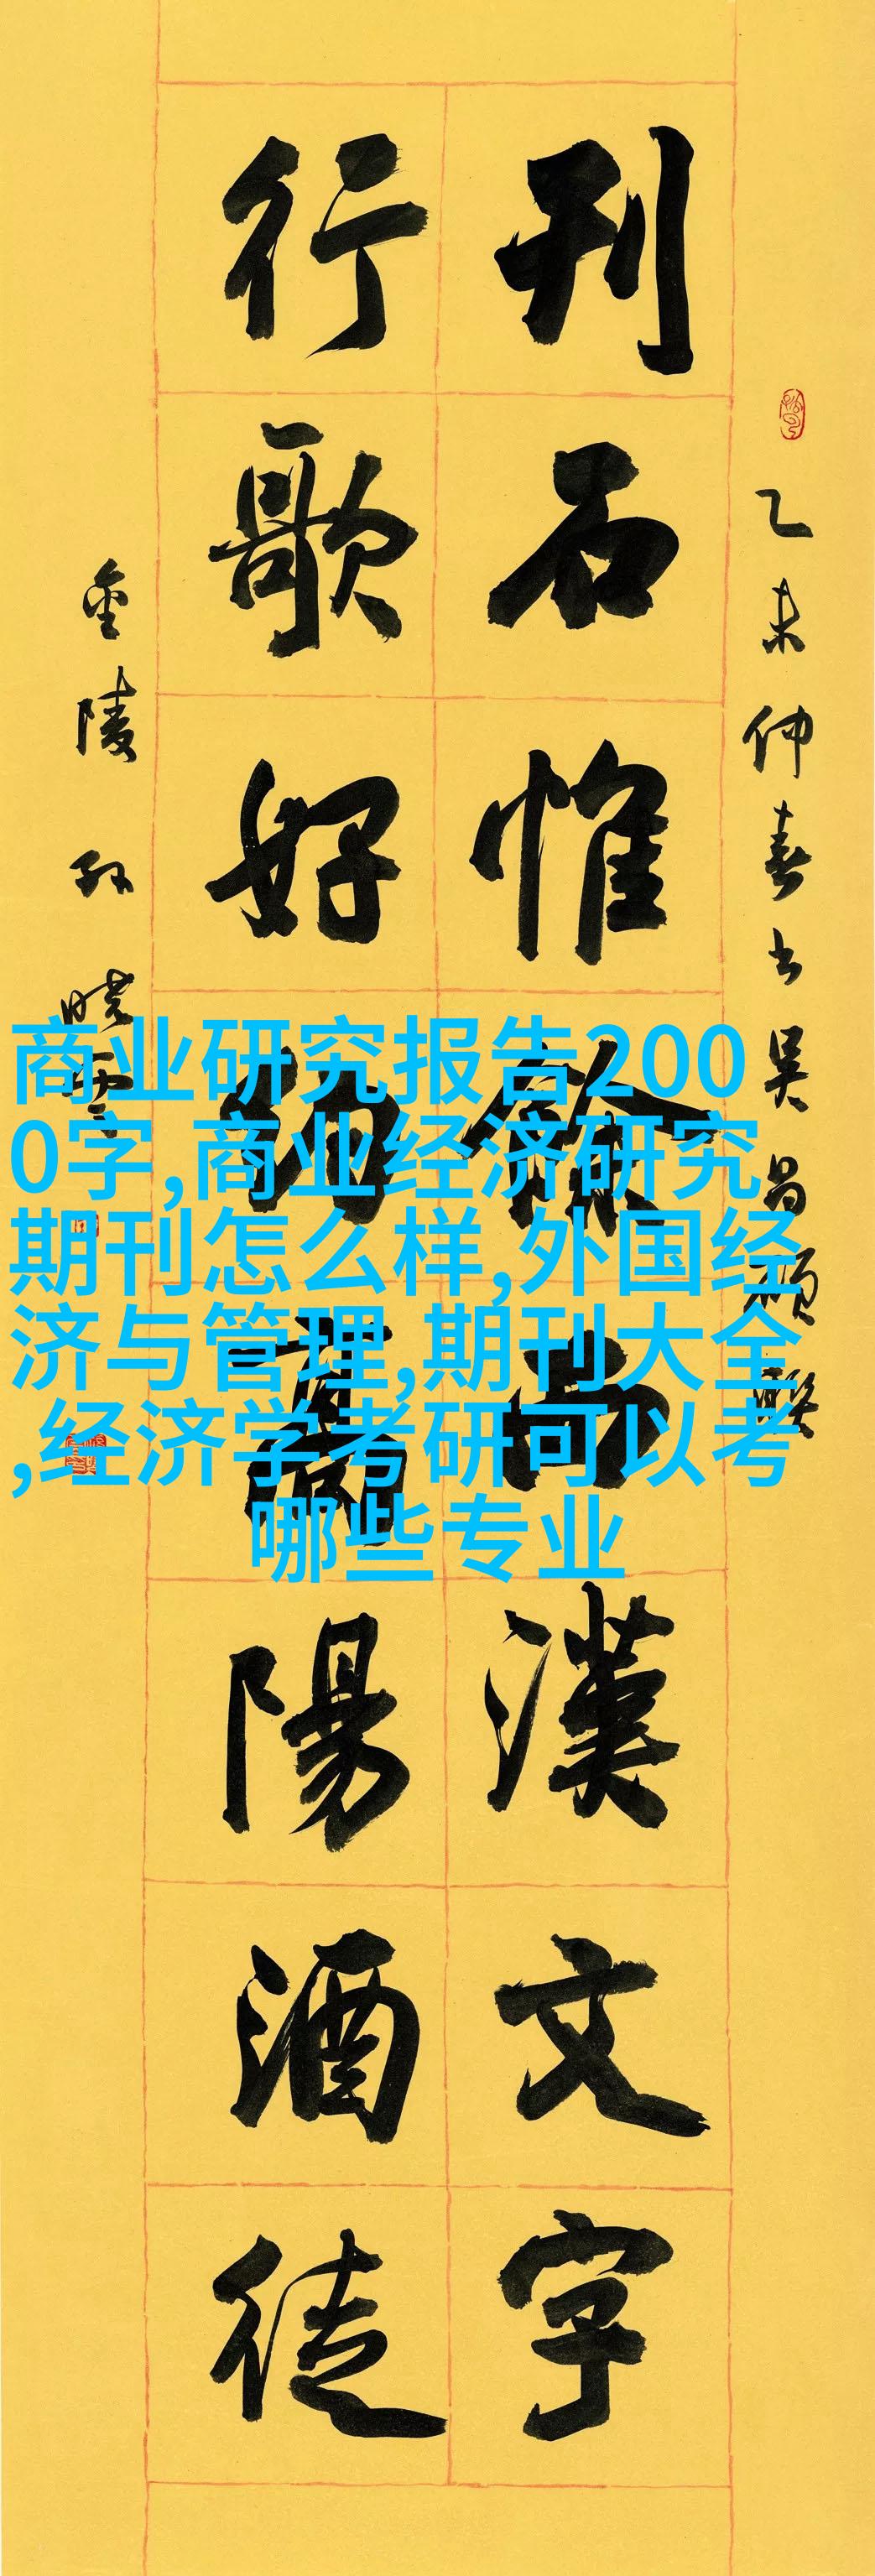 乙未仲春书吴昌碩聯
刊石惟餘西漢文字
行歌好約高陽酒徒
金陵孙晓雲
商业研究报告200
0字,商业经济研究
期刊怎么样,外国经
济与管理,期刊大全
,经济学考研可以考
哪些专业